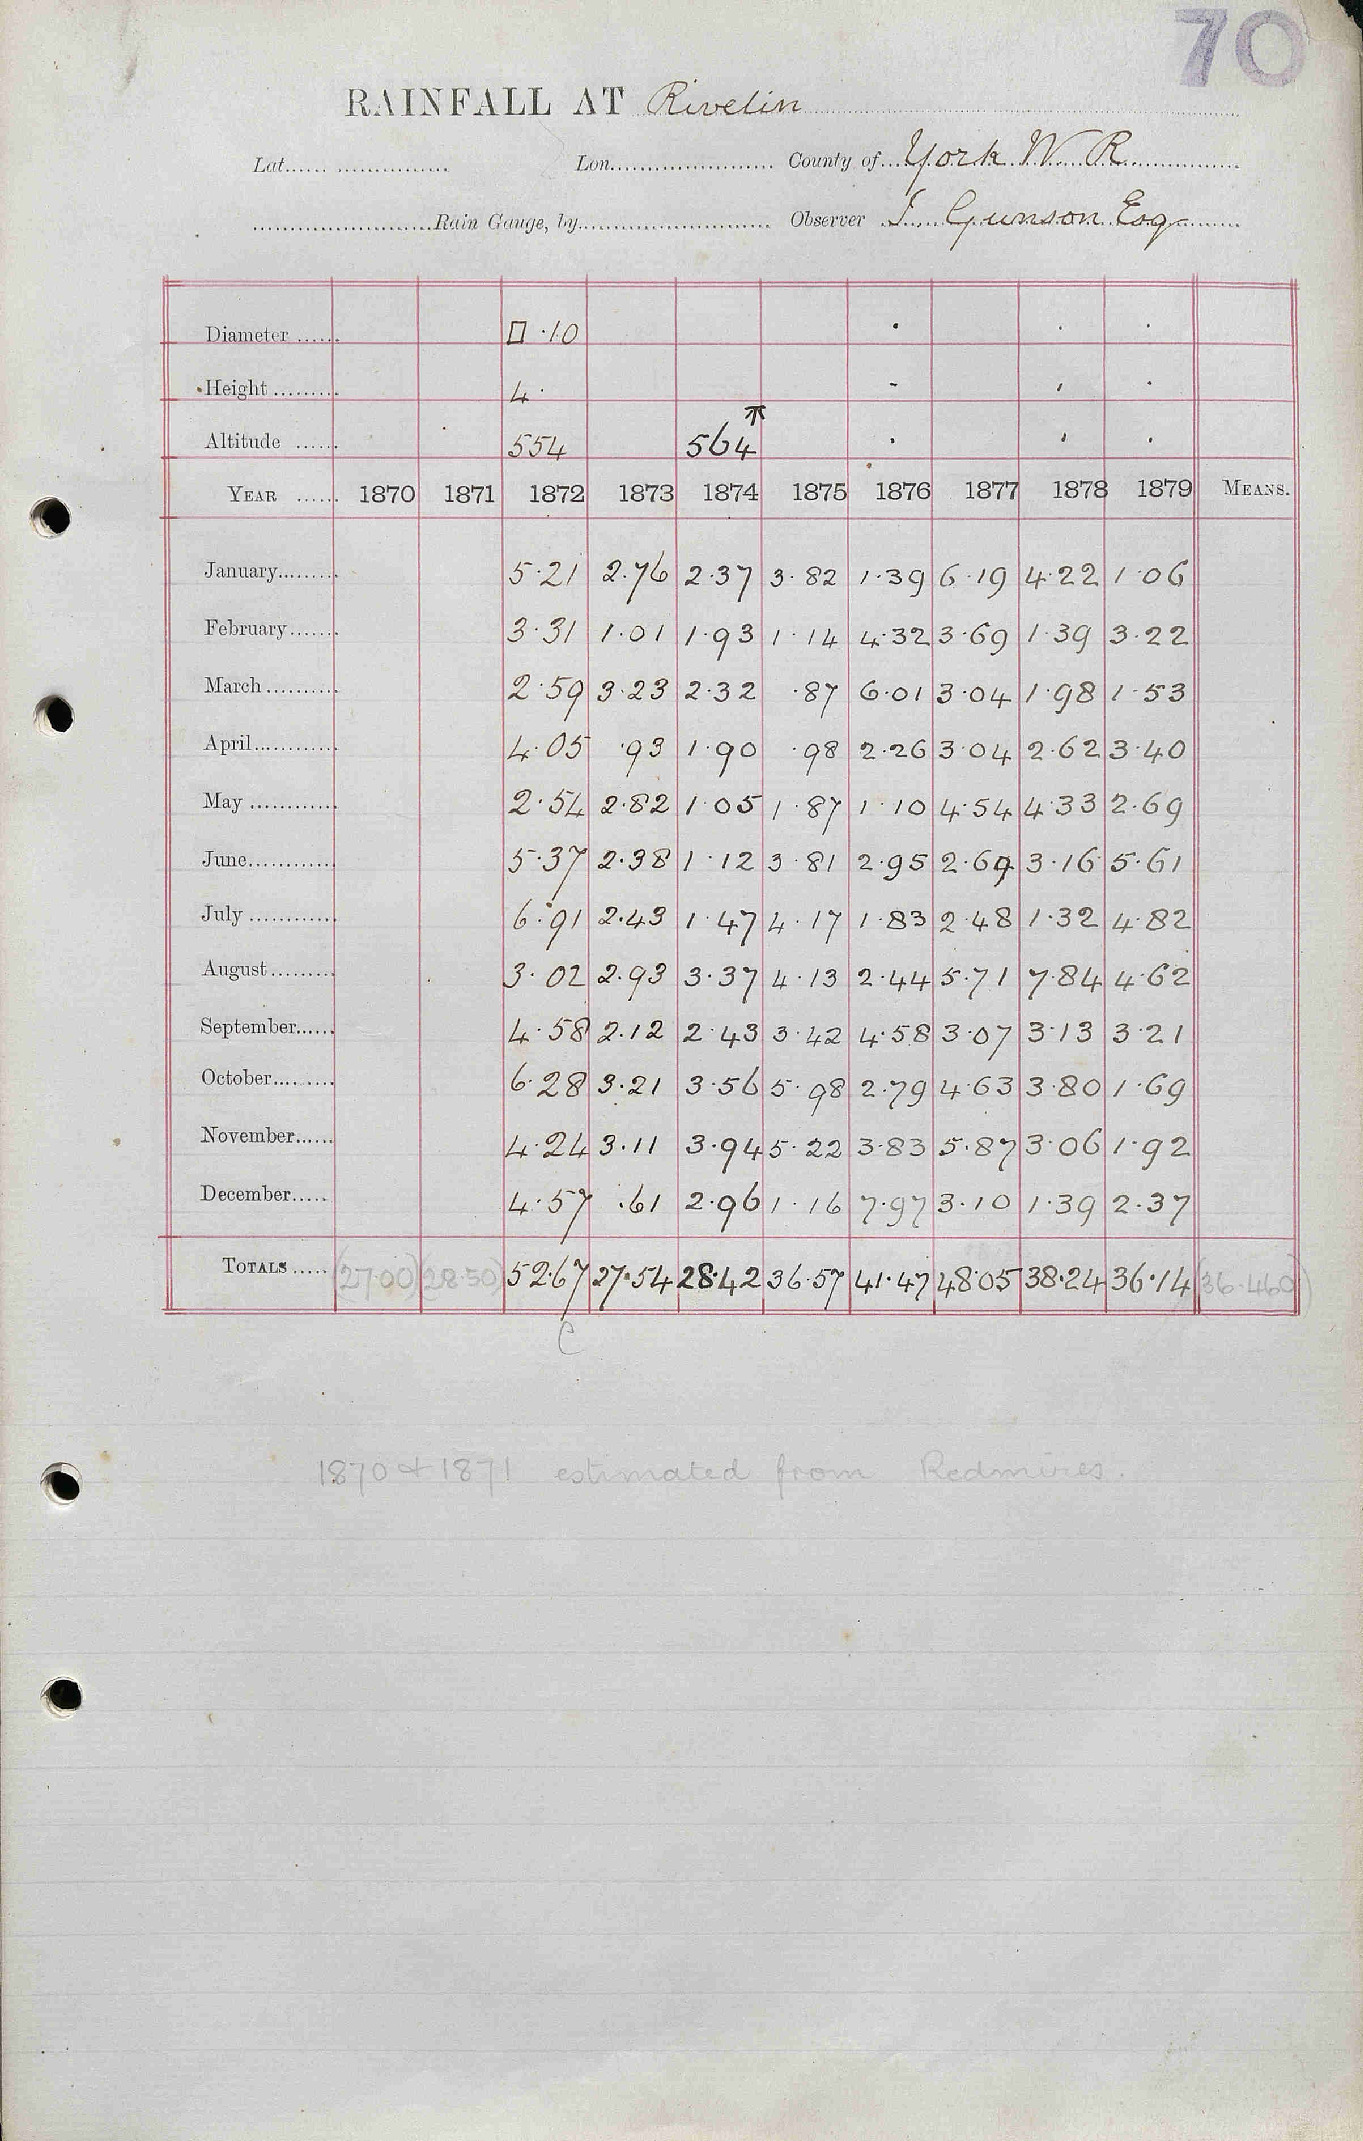 70
RAINFALL AT Rivelin
Lat. Lon. County of York W R
Rain Gauge, by Observer J. Gunson Esq
Diameter □ ·10
Height 4·
Altitude 554 564
YEAR 1870 1871 1872 1873 1874 1875 1876 1877 1878 1879 MEANS.
January 5·21 2·76 2·37 3·82 1·39 6·19 4·22 1·06
February 3·31 1·01 1·93 1·14 4·32 3·69 1·39 3·22
March 2·59 3·23 2·32 ·87 6·01 3·04 1·98 1·53
April 4·05 ·93 1·90 ·98 2·26 3·04 2·62 3·40
May 2·54 2·82 1·05 1·87 1·10 4·54 4·33 2·69
June 5·37 2·38 1·12 3·81 2·95 2·69 3·16 5·61
July 6·91 2·43 1·47 4·17 1·83 2·48 1·32 4·82
August 3·02 2·93 3·37 4·13 2·44 5·71 7·84 4·62
September 4·58 2·12 2·43 3·42 4·58 3·07 3·13 3·21
October 6·28 3·21 3·56 5·98 2·79 4·63 3·80 1·69
November 4·24 3·11 3·94 5·22 3·83 5·87 3·06 1·92
December 4·57 ·61 2·96 1·16 7·97 3·10 1·39 2·37
TOTALS (27·00) (28·50) 52·67 27·54 28·42 36·57 41·47 48·05 38·24 36·14 (36·460)
C
1870 & 1871 estimated from Redmires.